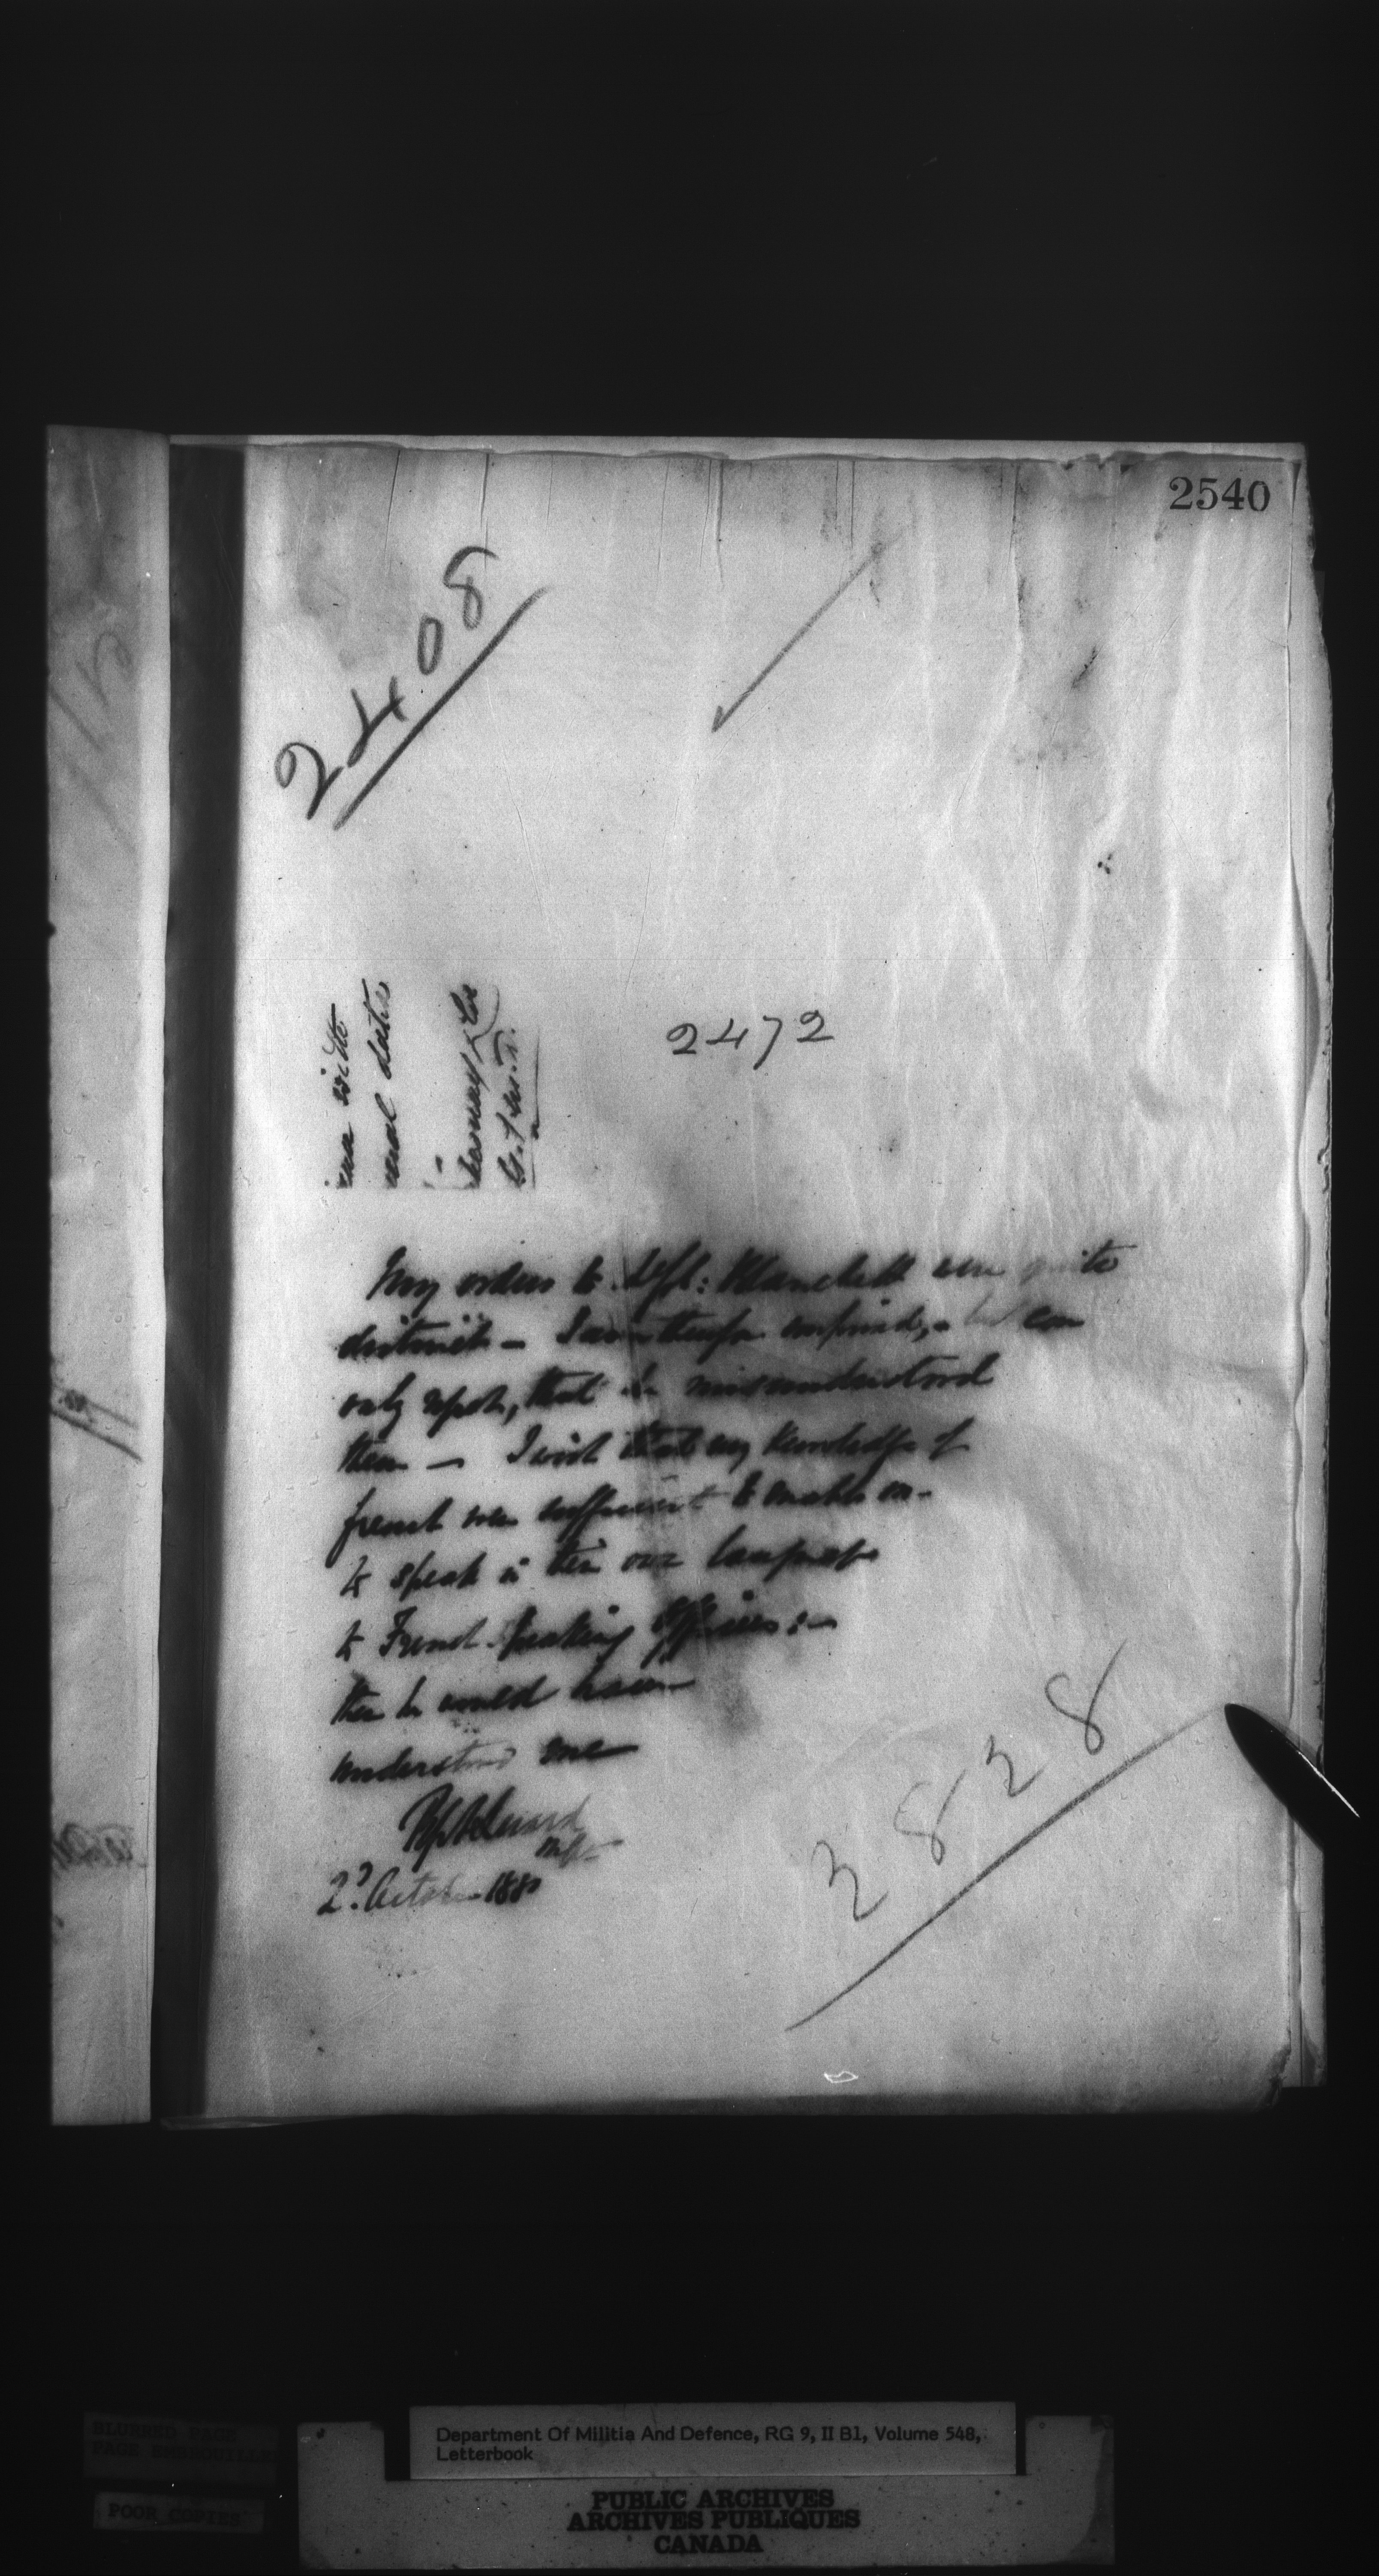 2540
2408
2472
My orders to Blanchett were quite
distinct - I am therefore surprised, - but can
only repeat, that he misunderstood
them - I wish that my knowledge of
french were sufficient to enable me
to speak in their own language
to French speaking Officers :-
then he would have
understood me
2d. October 1880
3828
Department Of Militia And Defence, RG 9, II B1, Volume 548,
Letterbook
PUBLIC ARCHIVES
ARCHIVES PUBLIQUES
CANADA
BLURRED PAGE
PAGE EMBROUILLEE
POOR COPIES